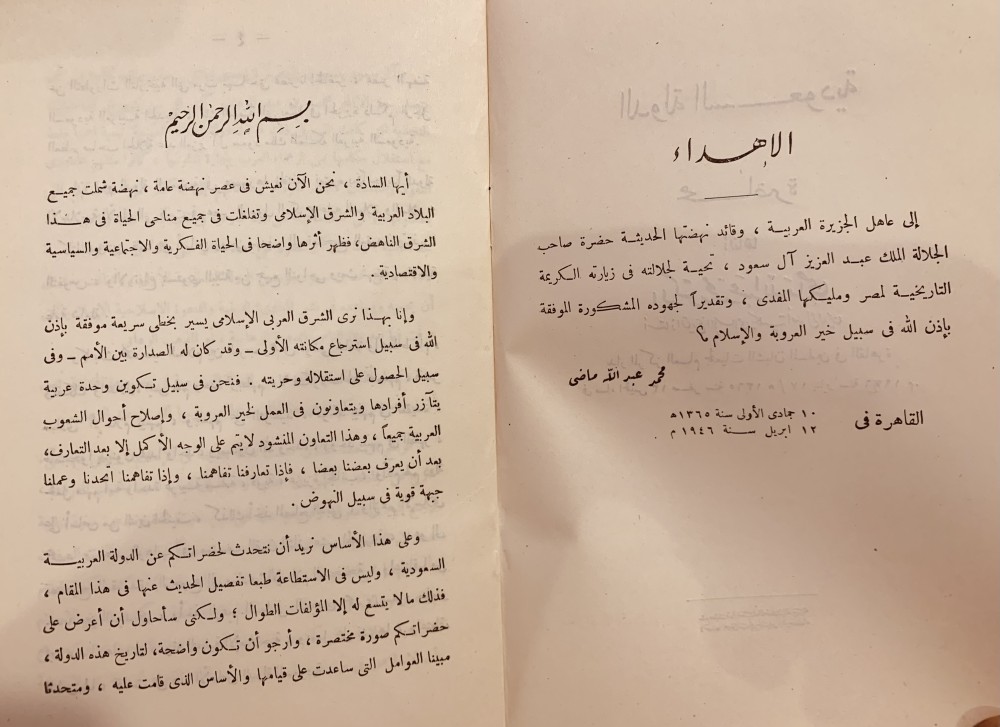 الإهداء
إلى عاهل الجزيرة العربية ، وقائد نهضتها الحديثة حضرة صاحب
الجلالة الملك عبد العزيز آل سعود ، تحية لجلالته فى زيارته الكريمة
التاريخية لمصر ومليكها المفدى ، وتقديراً لجهوده المشكورة الموفقة
بإذن الله فى سبيل خير العروبة والإسلام ؟
محمد عبد الله ماضى
القاهرة فى
١٠ جمادى الأولى سنة ١٣٦٥ ه
١٢ ابريل سنة ١٩٤٦ م
بسم الله الرحمن الرحيم
أيها السادة ، نحن الآن نعيش فى عصر نهضة عامة ، نهضة شملت جميع
البلاد العربية والشرق الإسلامى وتغلغلت فى جميع مناحى الحياة فى هذا
الشرق الناهض ، فظهر أثرها واضحا فى الحياة الفكرية والاجتماعية والسياسية
والاقتصادية .
وإنا بهذا نرى الشرق العربى الإسلامى يسير بخطى سريعة موفقة بإذن
الله فى سبيل استرجاع مكانته الأولى ــ وقد كان له الصدارة بين الأمم ــ وفى
سبيل الحصول على استقلاله وحريته . فنحن فى سبيل تكوين وحدة عربية
يتآزر أفرادها ويتعاونون فى العمل لخير العروبة ، وإصلاح أحوال الشعوب
العربية جميعاً ، وهذا التعاون المنشود لا يتم على الوجه الأكمل إلا بعد التعارف،
بعد أن يعرف بعضنا بعضا ، فإذا تعارفنا تفاهمنا ، وإذا تفاهمنا اتحدنا وعملنا
جبهة قوية فى سبيل النهوض .
وعلى هذا الأساس نريد أن نتحدث لحضراتكم عن الدولة العربية
السعودية ، وليس فى الاستطاعة طبعا تفصيل الحديث عنها فى هذا المقام ،
فذلك مالا يتسع له إلا المؤلفات الطوال ؛ ولكنى سأحاول أن أعرض على
حضراتكم صورة مختصرة ، وأرجو أن تكون واضحة، لتاريخ هذه الدولة ،
مبينا العوامل التى ساعدت على قيامها والأساس الذى قامت عليه ، ومتحدثا